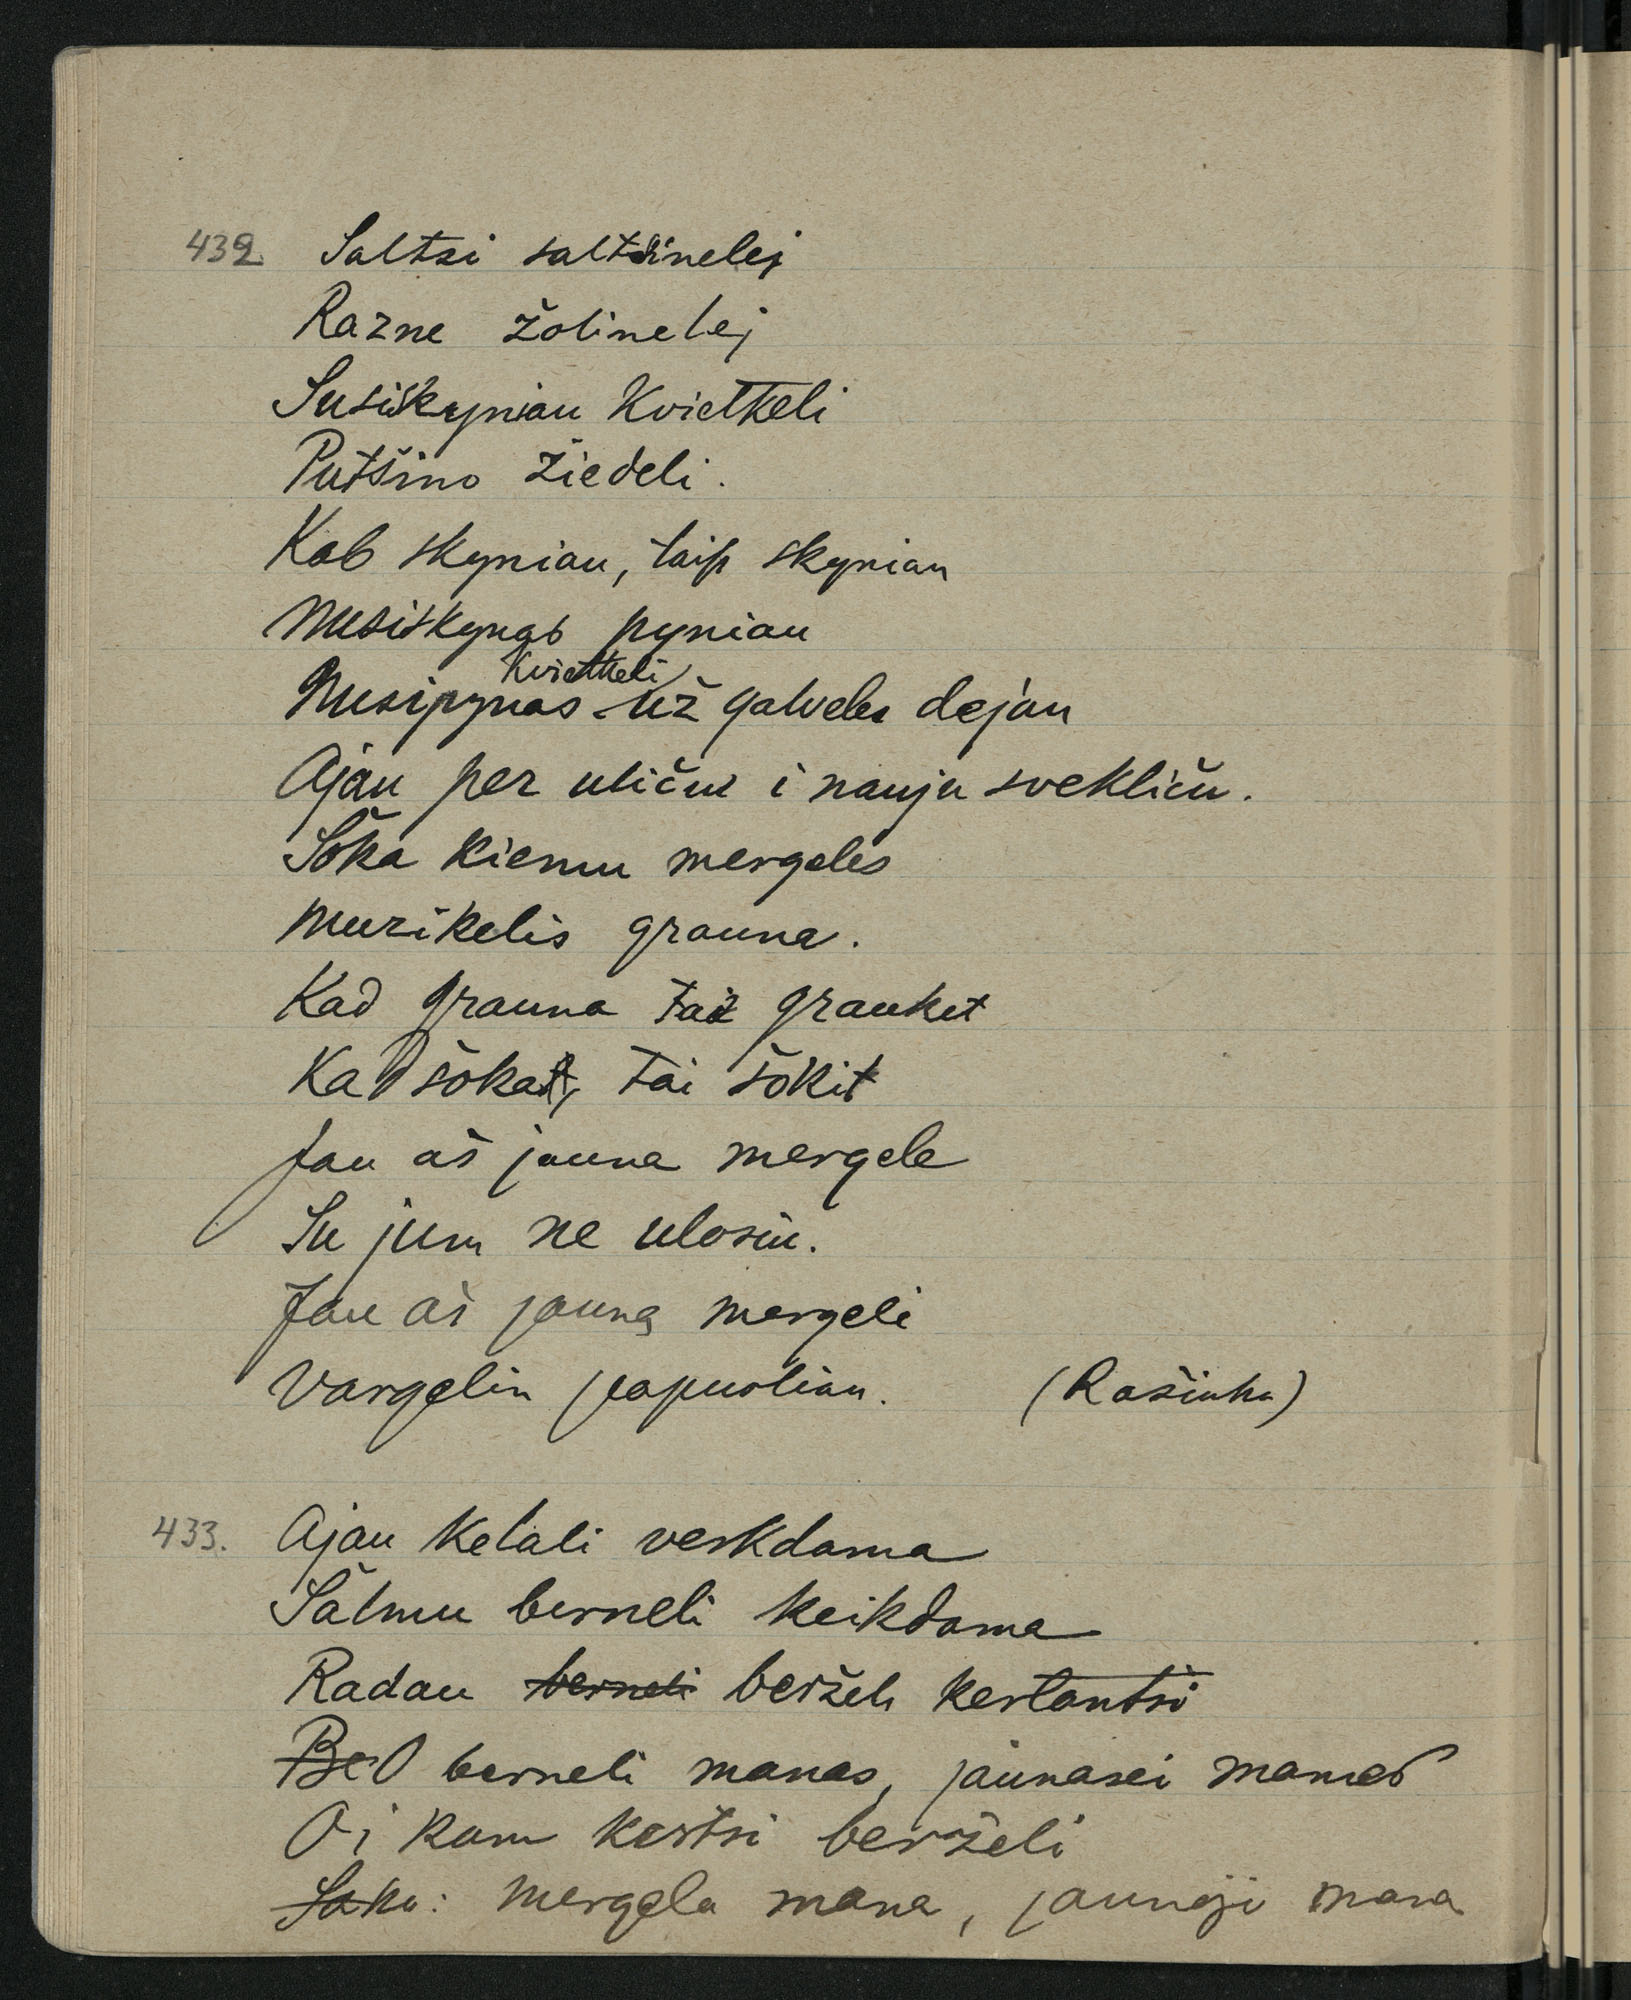 432. Saltsi saltsinelej
Razne žolinelej
Susiskyniau kvietkeli
Putšino žiedeli.
Kab skyniau, taip skyniau
Nusiskynas pyniau
kvietkeli
Nusipynas už galveles dejau
Ajau per uliču i nauju svekliču.
Šoka kiemu mergeles
Muzikelis grauna.
Kad grauna tai grauket
Kad šokat, tai šokit
Jau aš jauna mergele
Su jum ne ulosiu.
Jau aš jauna mergeli
Vargelin papuoliau. (Rašiuku)
433. Ajau kelali verkdama
Šalmu berneli keikdama
Radau berneli berželi kertantsi
Be O berneli manas, jaunasei manas
Oi kam kertsi berželi
Saka: mergela mana, jaunoji mana